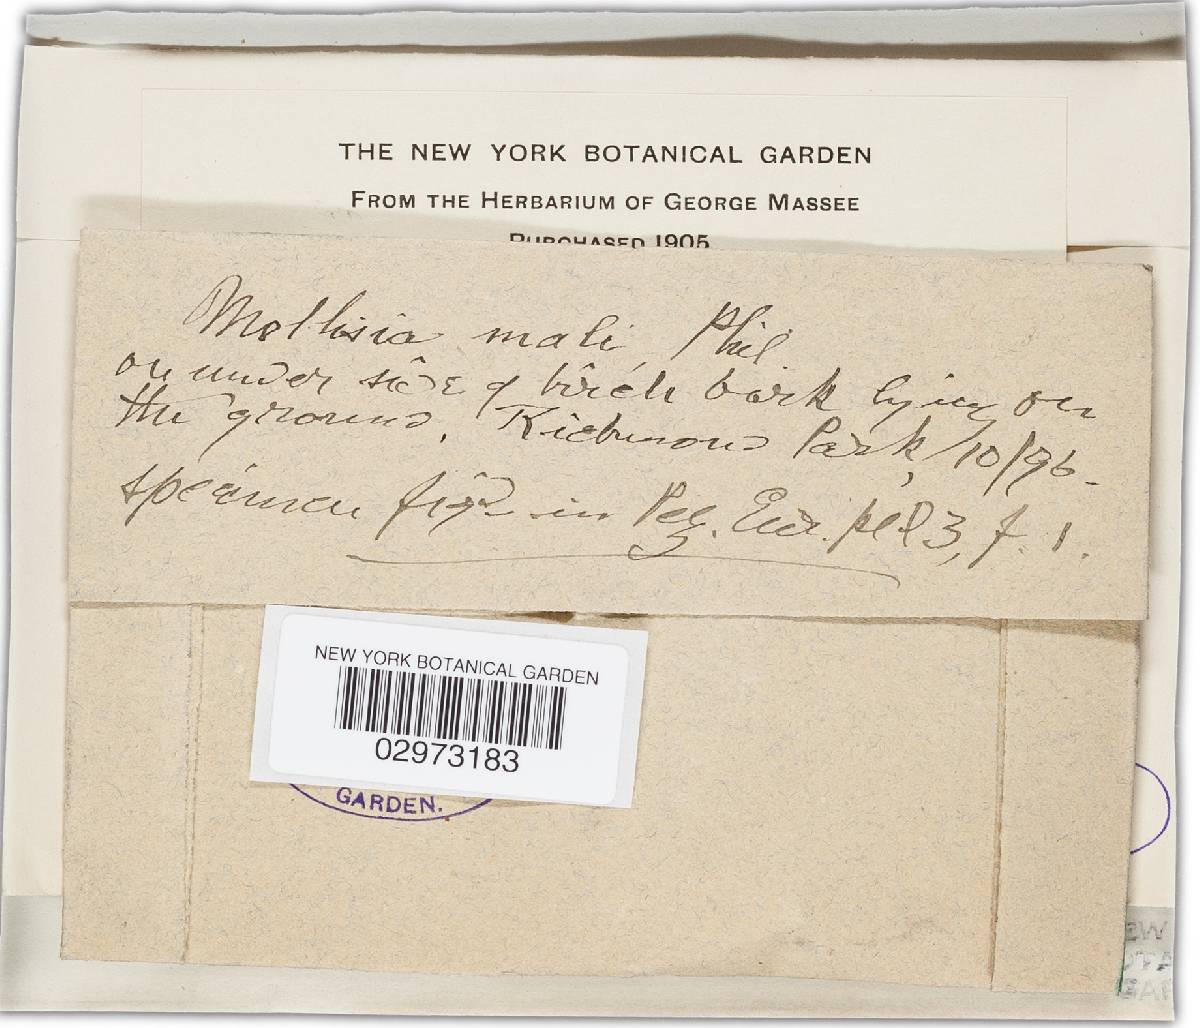 THE NEW YORK BOTANICAL GARDEN
FROM THE HERBARIUM OF GEORGE MASSEE
PURCHASED 1905
Mollisia mali, Phil
on under side of birch bark lying on
the ground, Richmond Park, 10/96.
specimen figd in Pez. Eur. pl 3, f. 1.
NEW YORK BOTANICAL GARDEN
02973183
GARDEN.